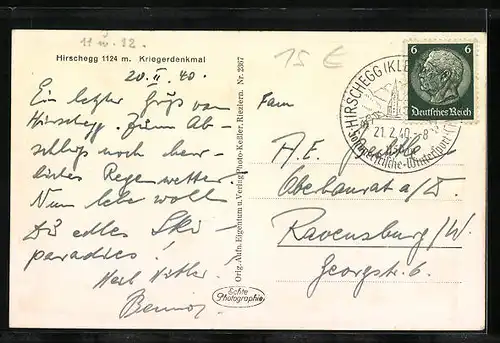 11 u. 12.
15 €
Hirschegg 1124 m. Kriegerdenkmal
20. II. 40.
Ein letzter Gruß von
Hirschegg. Zum Ab-
schluß noch herr-
liches Regenwetter.
Nun lebe wohl
Du edles Ski-
paradies!
Heil Hitler!
Orig. Aufn. Eigentum u. Verlag Photo-Keßler, Riezlern. Nr. 2307
Echte
Photographie
6 6
Deutsches Reich
HIRSCHEGG (KLE
21.2.40.-8
Fam
A. E.
Oberbaurat a/D.
Ravensburg/W.
Georgstr. 6.